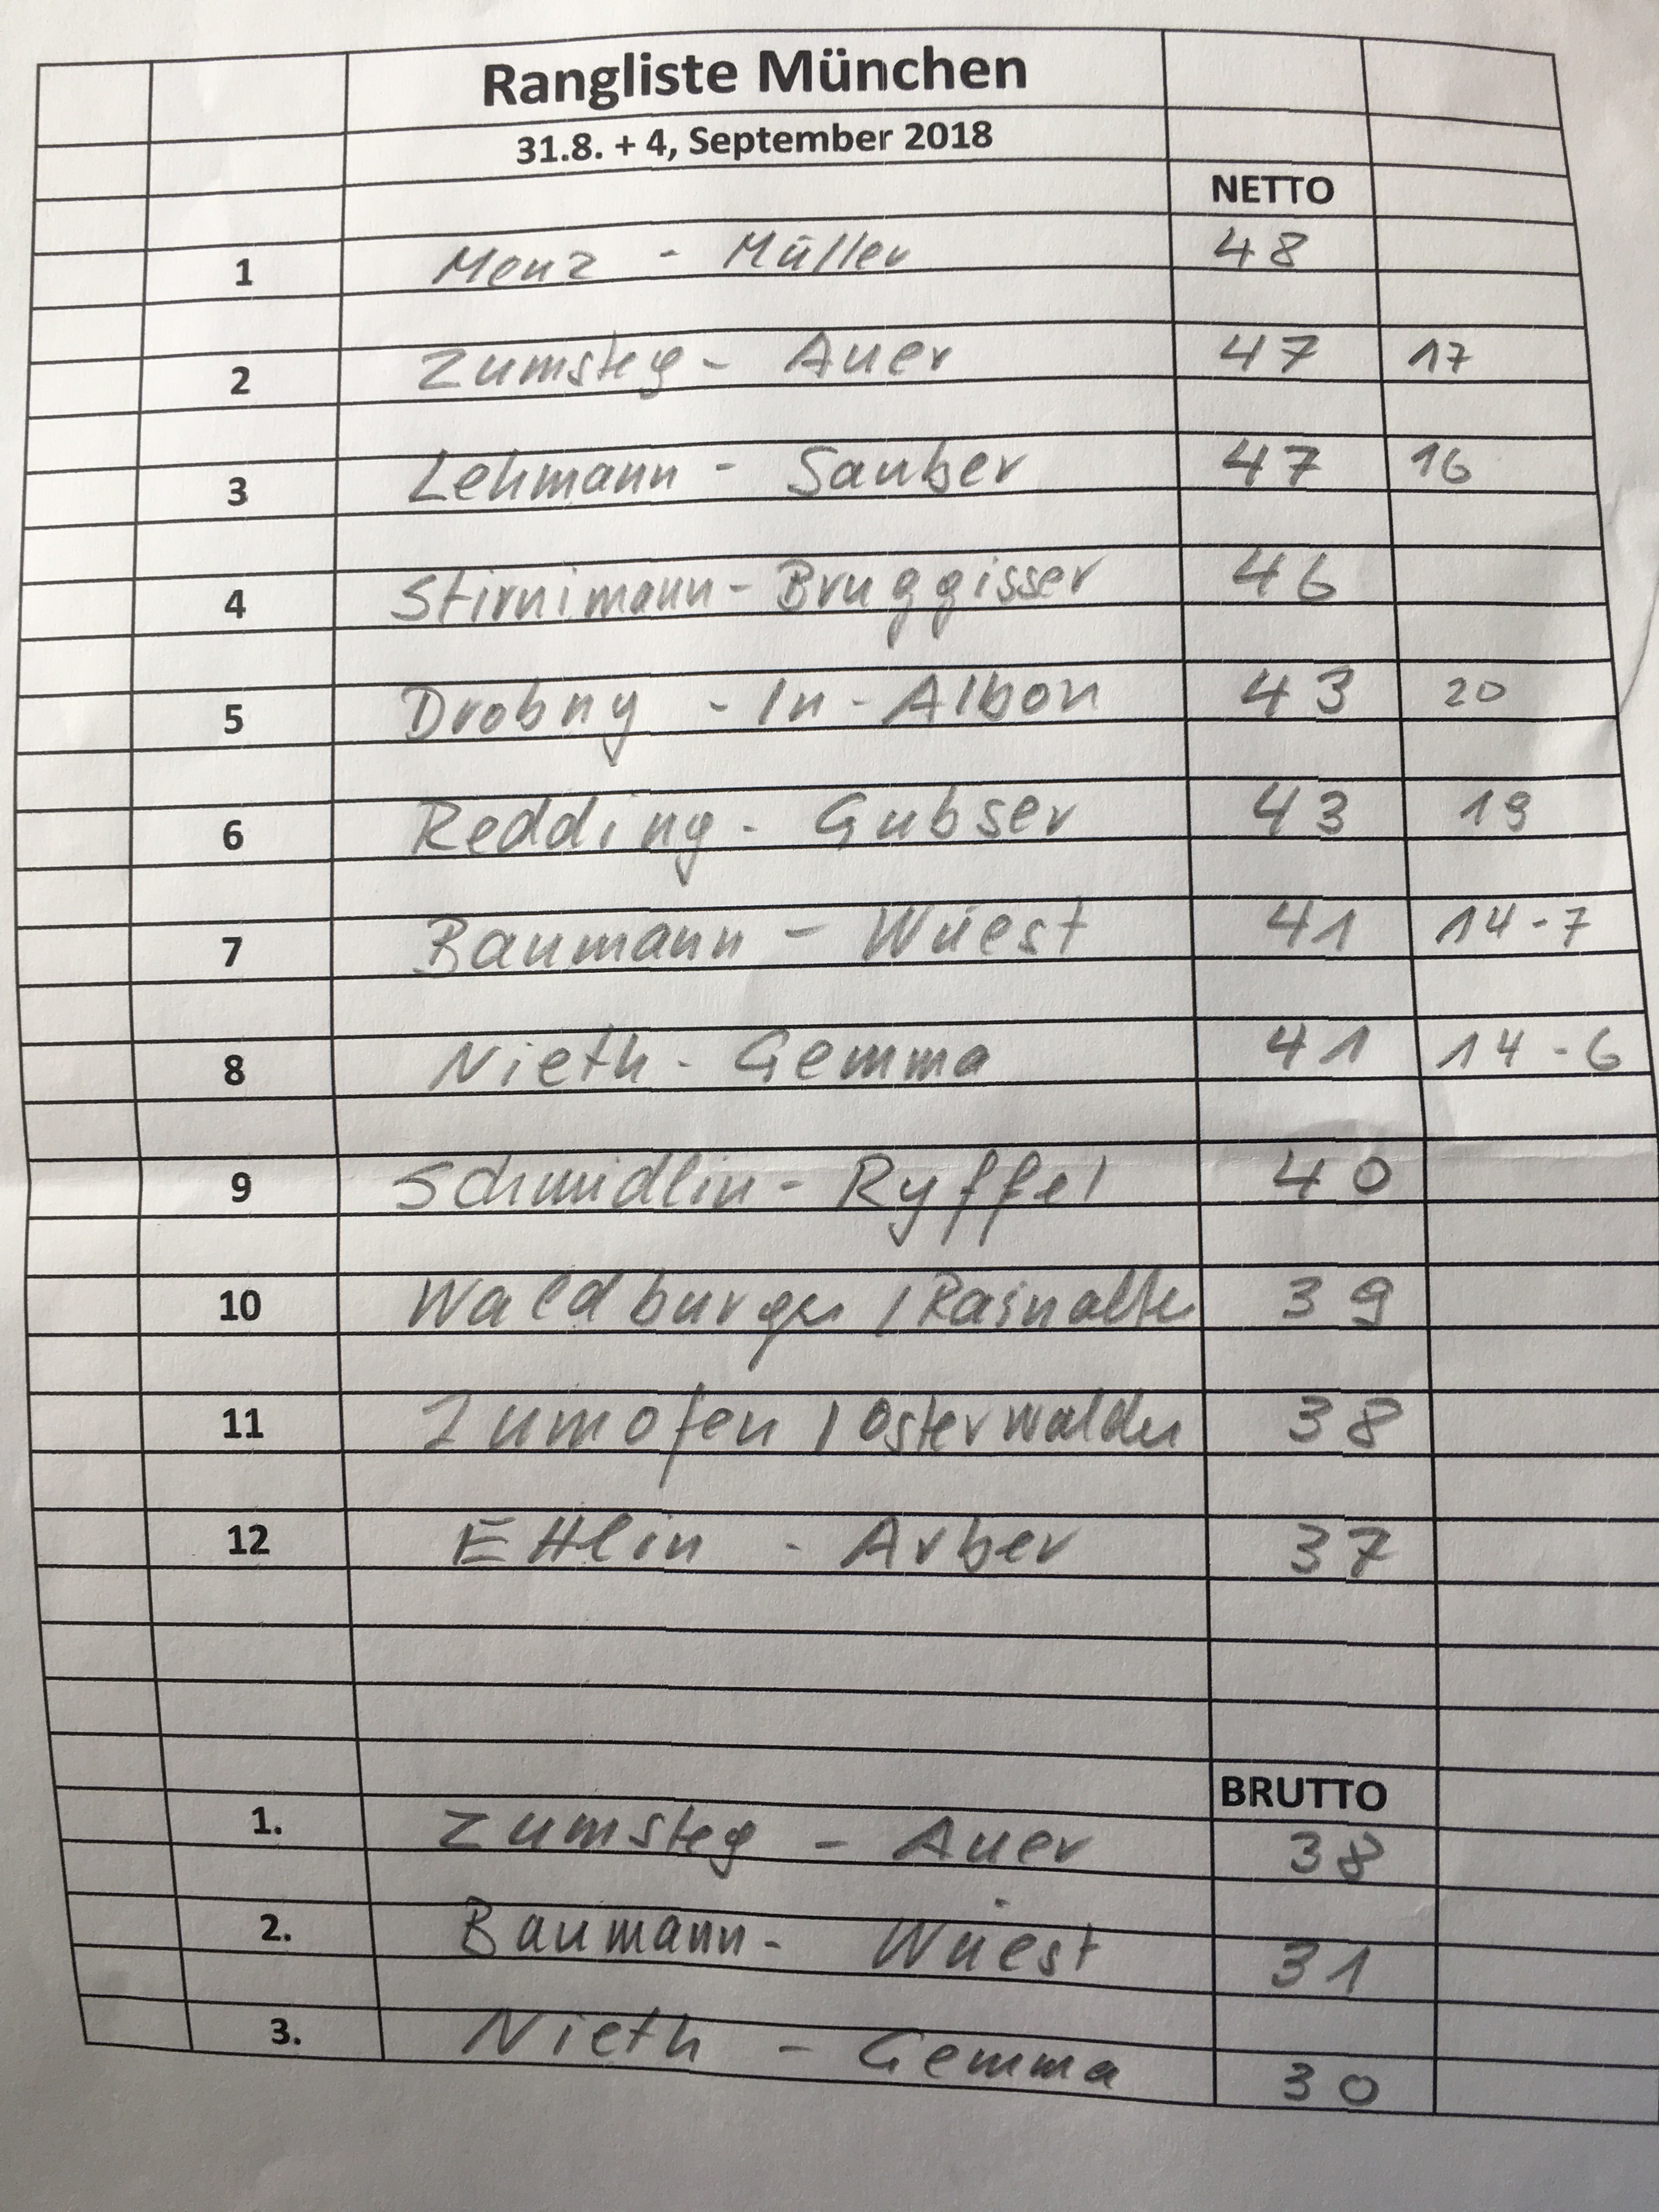 Rangliste München
31.8. + 4, September 2018
NETTO
1 Menz - Müller 48
2 Zumsteg - Auer 47 17
3 Lehmann - Sauber 47 16
4 Stirnimann - Bruggisser 46
5 Drobny - In-Albon 43 20
6 Redding - Gubser 43 19
7 Baumann - Wüest 41 14-7
8 Nieth - Gemma 41 14-6
9 Schmidlin - Ryffel 40
10 Waldburger / 39
11 Zumofen / Osterwalder 38
12 Ettlin - Arber 37
BRUTTO
1. Zumsteg - Auer 38
2. Baumann - Wüest 31
3. Nieth - Gemma 30